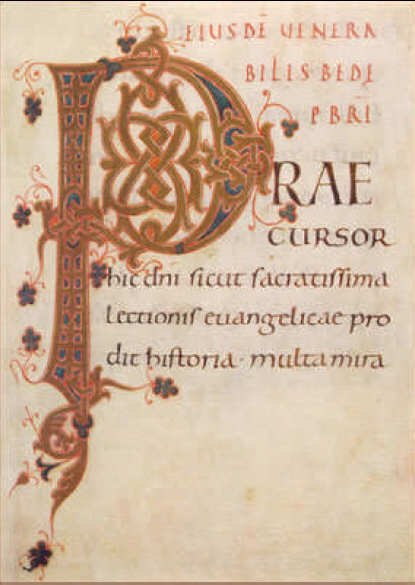 EIUSDĒ UENERA
BILIS BEDE
PBRI
PRAE
CURSOR
hic dni sicut sacratissima
lectionis euangelicae pro
dit historia · multa mira